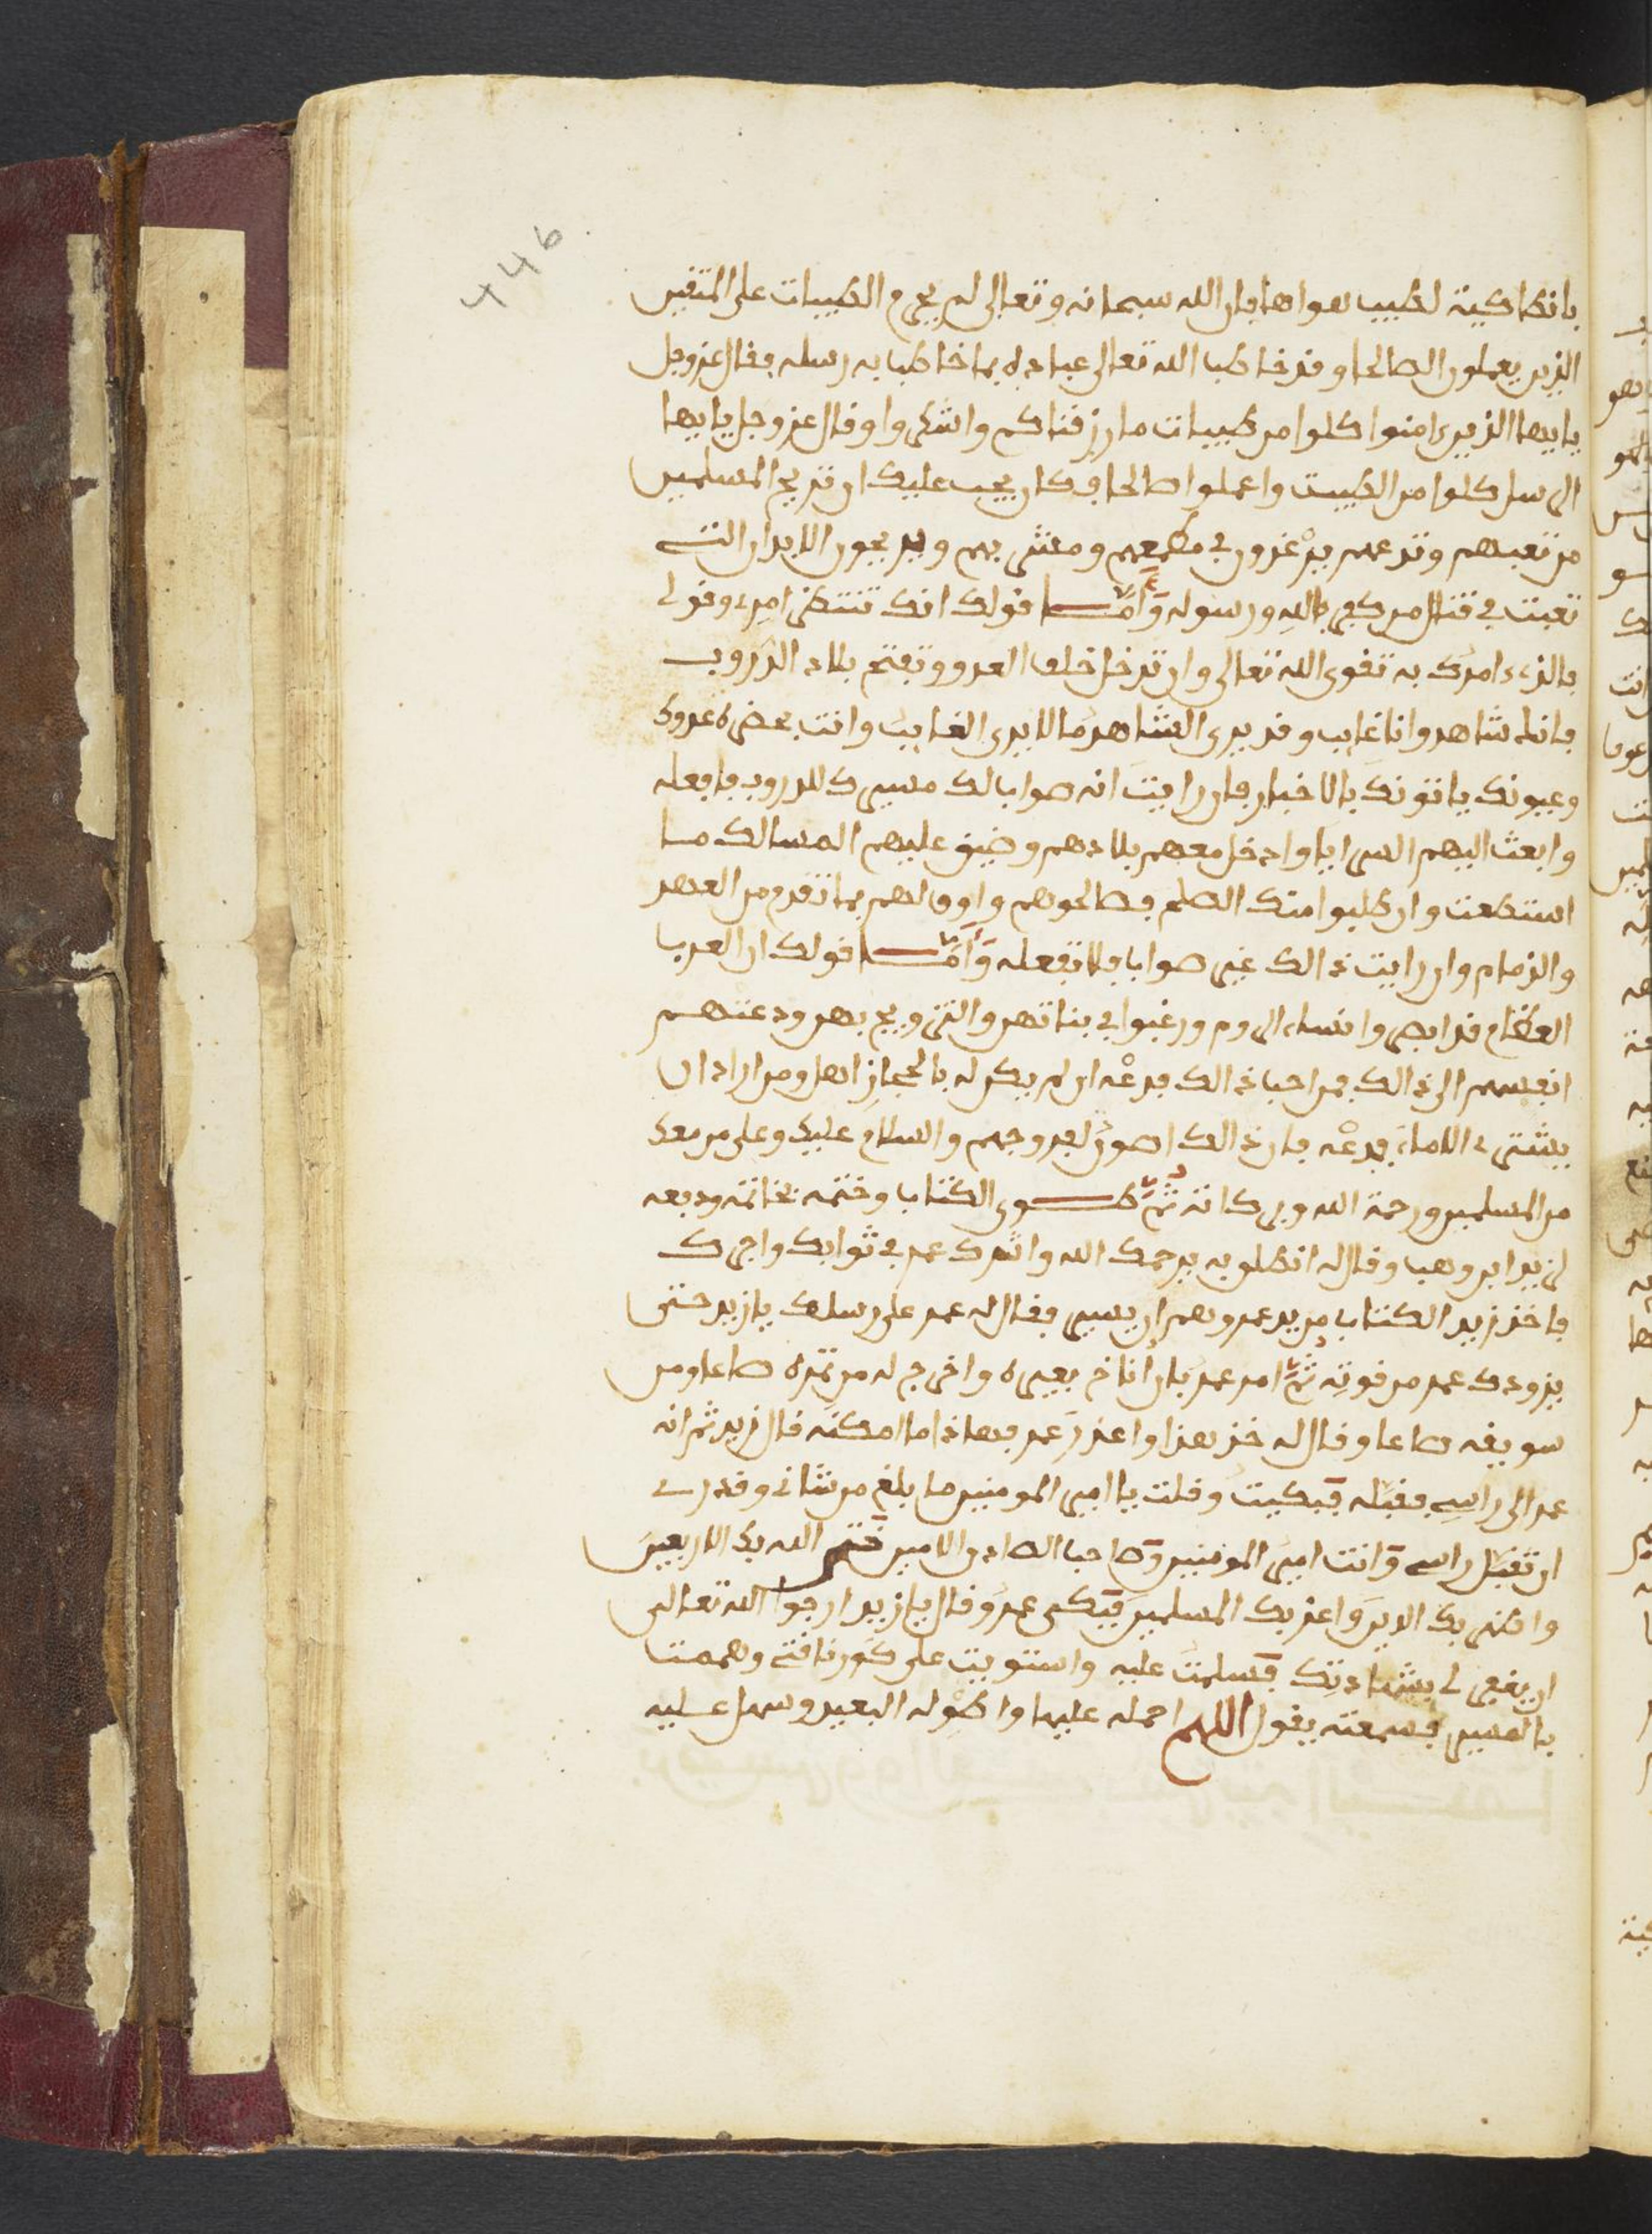 446
بانطاكية لطيب هواها فان الله سبحانه وتعالى لم يحرم الطيبات على المتقين
الذين يعملون الصالحا وقد خاطبا الله تعالى عباده بما خاطبا به رسله فقال عزوجل
يايها الذين امنوا كلوا من طيبات ما رزقناكم واشكروا وقال عزوجل يايها
الرسل كلوا من الطيبت واعملوا صالحا وكان يجب عليك ان تريح المسلمين
من تعبهم وتدعهم يرغدون في مطعمهم ومشربهم ويريحون الابدان التي
تعبت في قتال من كفر بالله ورسوله وَأمَّا قولك انك تنتظر امرى وقولى
فالذى امرك به تقوى الله تعالى وان تدخل خلف العدو وتفتح بلاد الدروب
فانك شاهد وانا غايب وقد يرى الشاهد ما لا يرى الغايب وانت بحضرة عدوك
وعيونك ياتونك بالاخبار فان رايت انه صوابا لك مسيرك للدروب فافعله
وابعث اليهم السرايا وادخل معهم بلادهم وضيق عليهم المسالك ما
استطعت وان طلبوا منك الصلح فصالحوهم واوف لهم بما تقدم من العهد
والزمام وان رايت ذالك غير صوابا فلا تفعله وَأمَّا قولك ان العربا
العظام قد ابصروا نساء الروم ورغبوا في بناتهم والتزويج بهم ودعتهم
انفسهم الى ذالك فمن احبا ذالك فدعْه ان لم يكن له بالحجاز اهل ومن اراد ان
يشترى الاماء فدعْه فان ذالك اصون لفروجهم والسلام عليك وعلى من معك
من المسلمين ورحمة الله وبركاته ثمَّ طـوى الكتابا وختمه بخاتمه ودفعه
لزيد ابن وهب وقال له انطلو به يرحمك الله واشرك عمر في ثوابك واجرك
فاخذ زيد الكتاب من يد عمر وهم ان يسير فقال له عمر على رسلك يا زيد حتى
يزودك عمر من قوتِه ثمَّ امر عمر بان اناخ بعيره واخرج له من تمره صاعا ومن
سويقه صاعا وقال له خذ هذا واعذر عمر فهاذا ما امكنه قال زيد ثم انه
عمد الى راسِى فقبَّله فبكيت وقلت يا امير المومنين ما بلغ من شانى وقدرى
ان تقبل راسى وانت امير المومنين وصاحبا الصادق الامين ختم الله بك الاربعين
واظهر بك الدين واعز بك المسلمين فبكى عمر وقال يا زيد ارجوا الله تعالى
ان يغفر لى بشهادتِك فسلمت عليه واستويت على كور ناقتى وهممت
بالمسير فسمعته يقول اللهم احمله عليها واطْوِ له البعيد وسهل عليه